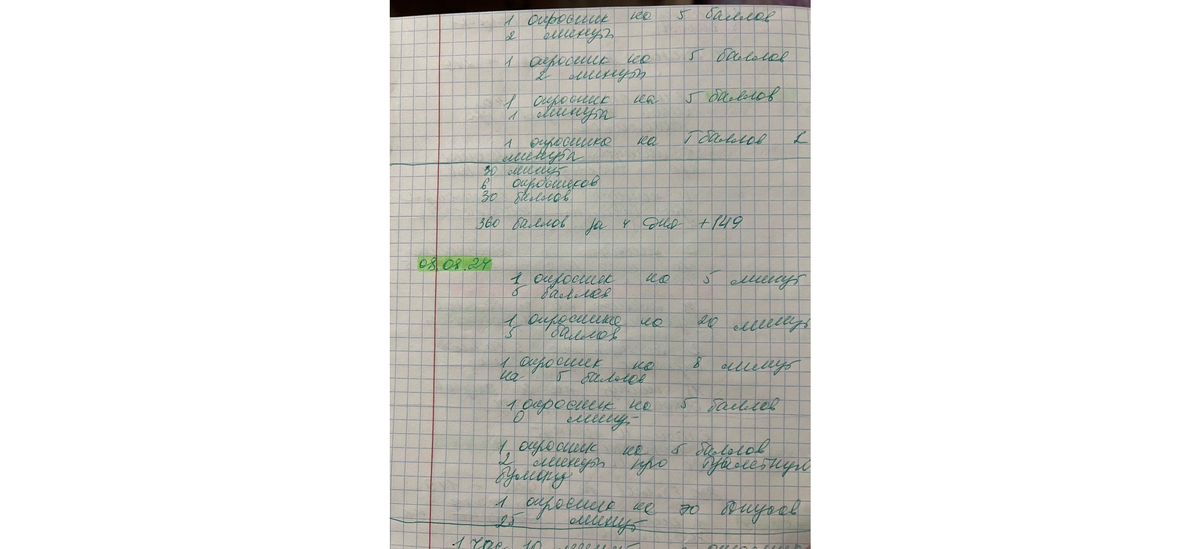 1 опросник на 5 баллов
2 минуты
1 опросник на 5 баллов
2 минуты
1 опросник на 5 баллов
1 минута
1 опросника на 5 баллов 2
минута
30 минут
6 опросников
30 баллов
360 баллов за 4 дня +149
08.08.24
1 опросник на 5 минут
5 баллов
1 опросника на 20 минут
5 баллов
1 опросник на 8 минут
на 5 баллов
1 опросник на 5 баллов
0 минут
1 опросник на 5 баллов
2 минуты про туалетную
бумагу
1 опросник на 70 бонусов
25 минут
1 час 10 минут